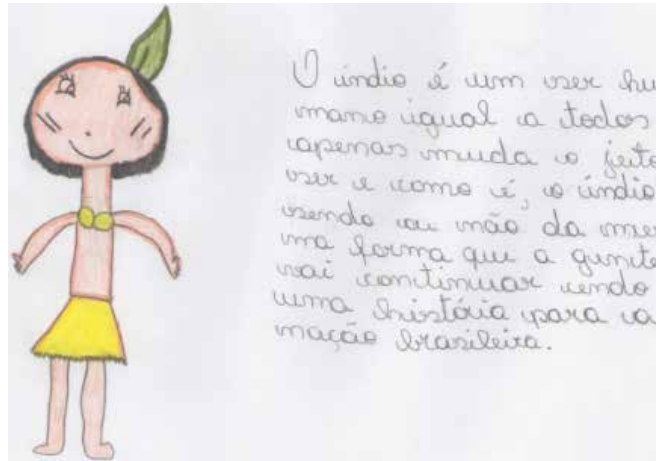 O índio é um ser hu
mano igual a todos
apenas muda o jeito
ser e como é, o índio
sendo ou não da mes
ma forma que a gente
vai continuar sendo
uma história para a
nação brasileira.